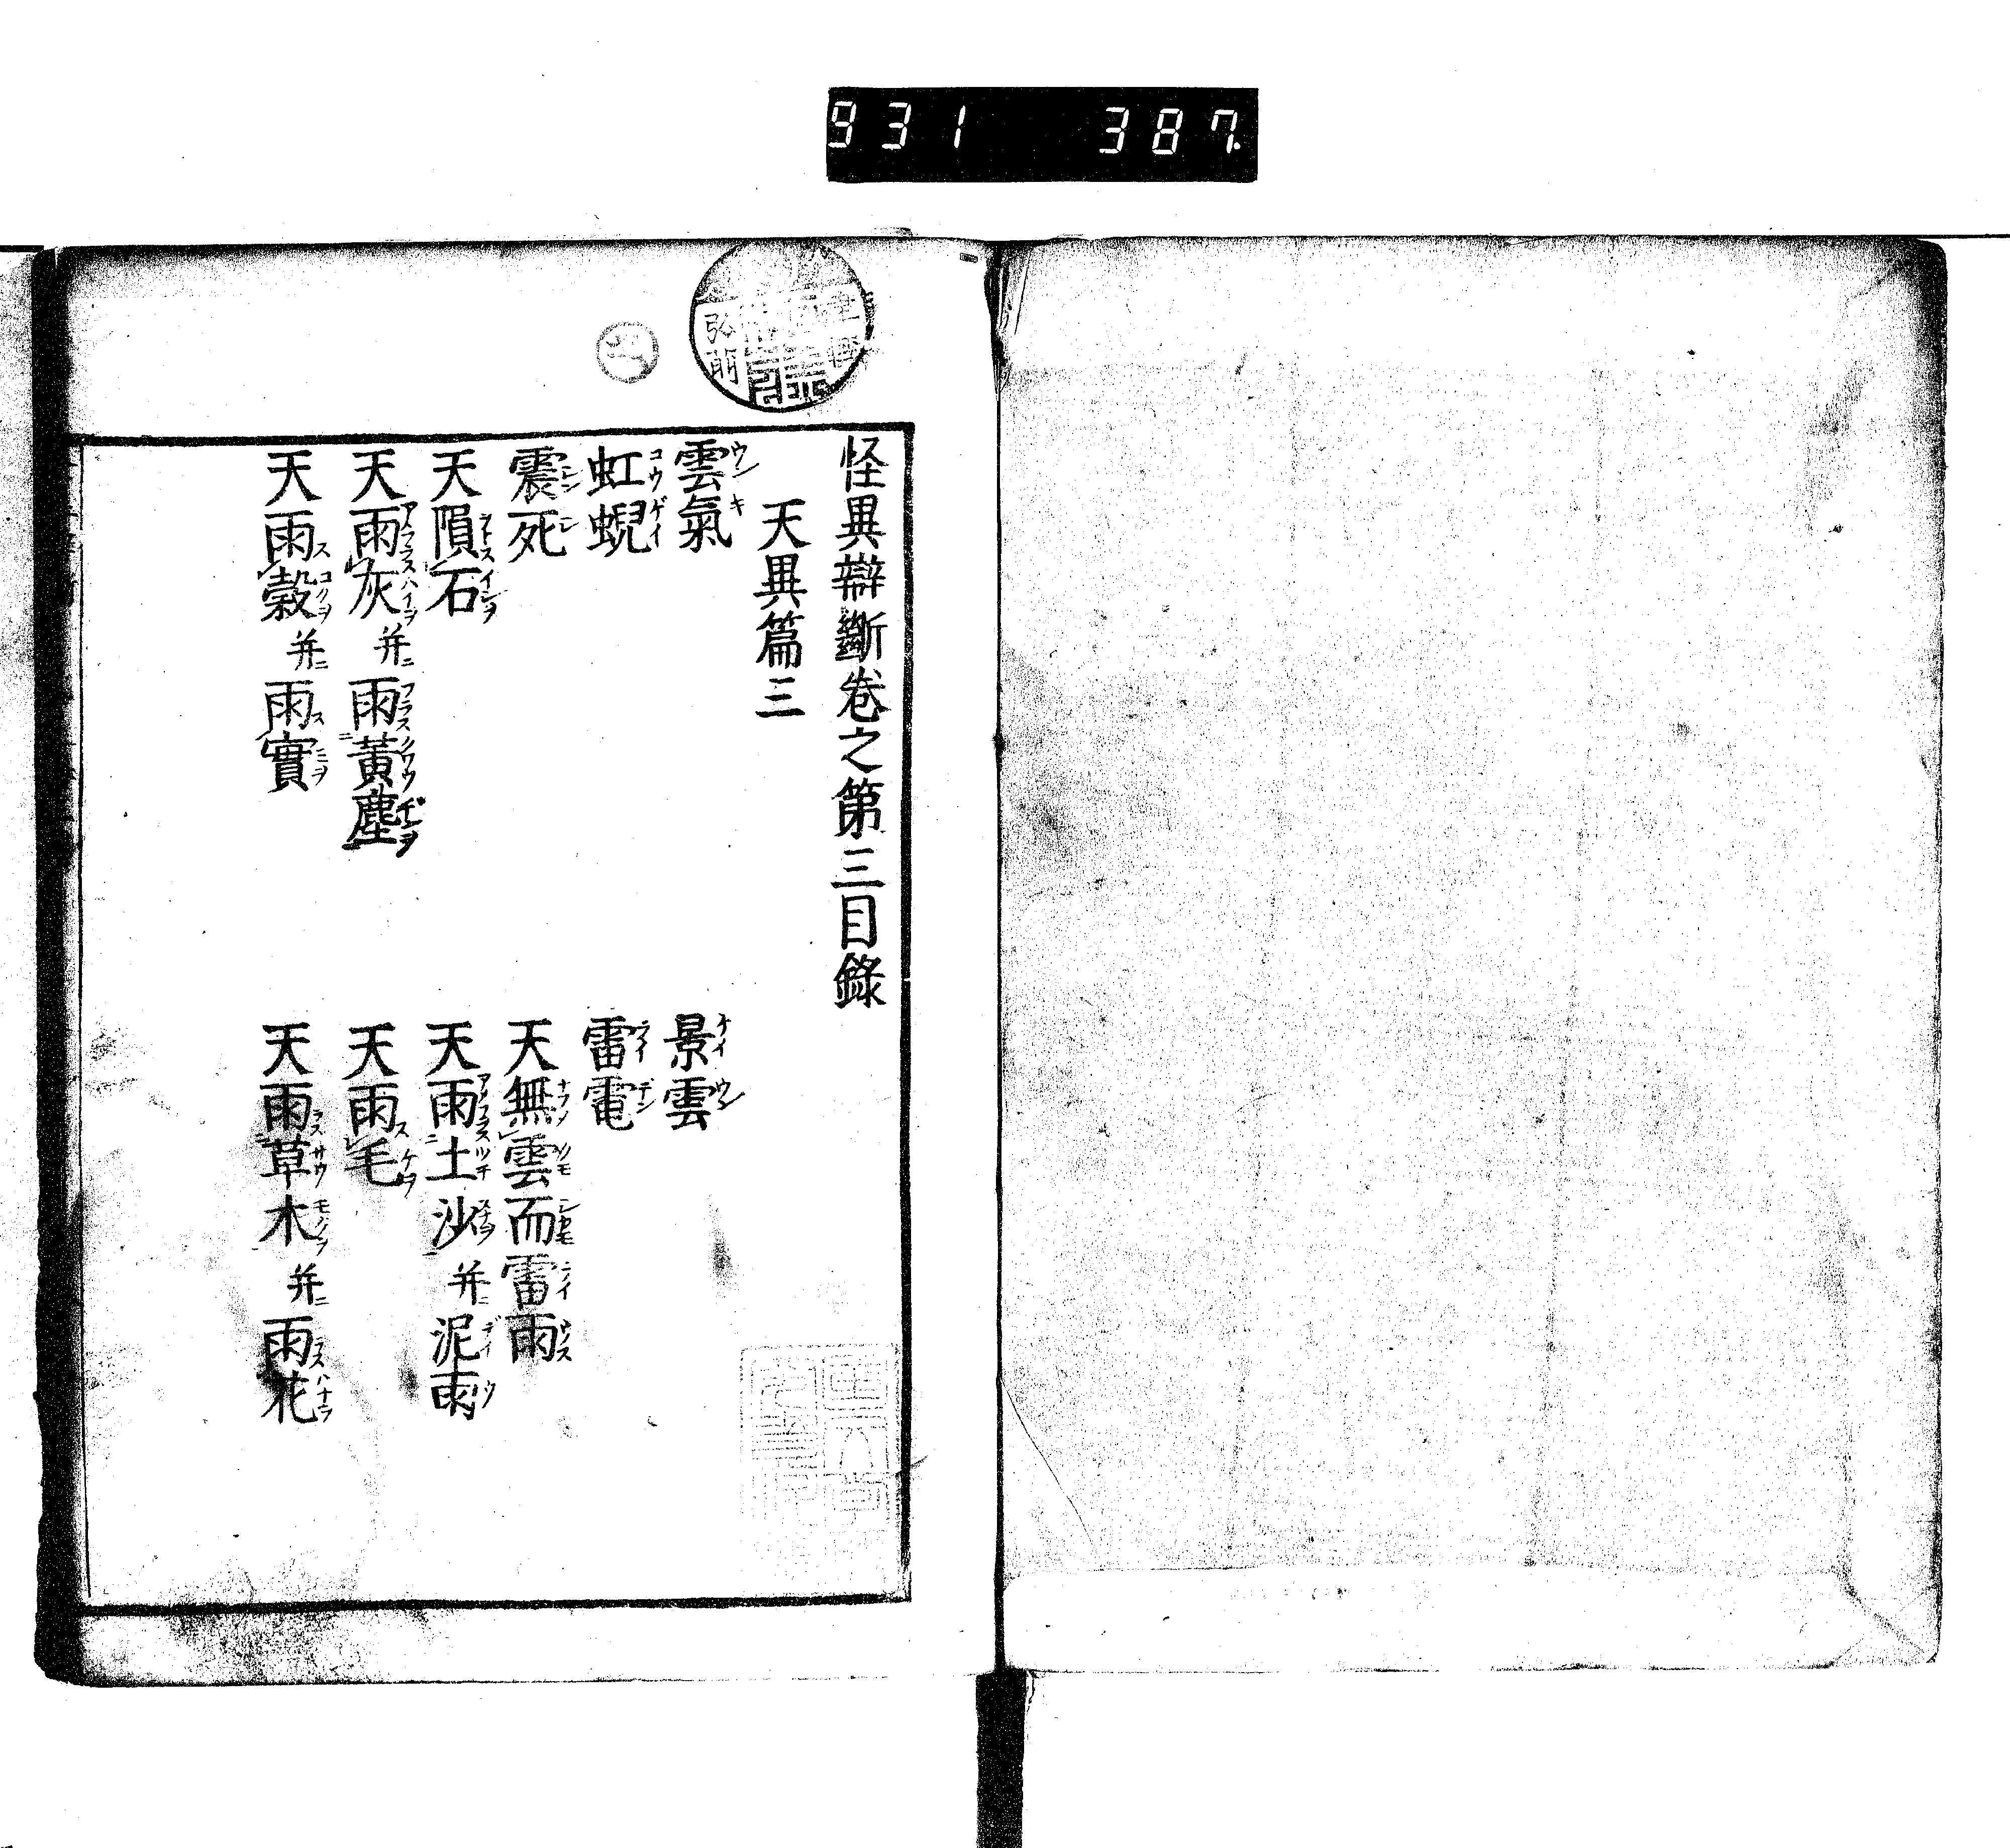 931 387
怪異辯斷卷之第三目錄
天異篇三
雲氣 景雲
虹蜺 雷電
震死 天無雲而雷雨
天隕石 天雨土沙并ニ泥雨
天雨灰并ニ雨黃塵 天雨毛
天雨穀并ニ雨實 天雨草木并ニ雨花
弘前